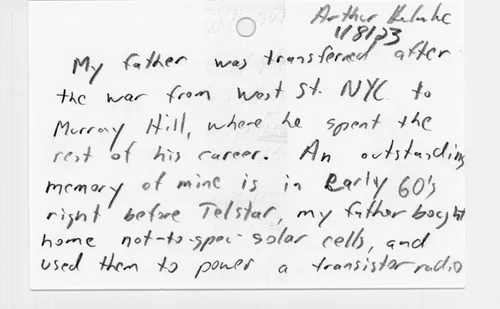 Arthur
1/8/23
My father was transferred after
the war from West St. NYC to
Murray Hill, where he spent the
rest of his career. An outstanding
memory of mine is in Early 60's
right before Telstar, my father bought
home not-to-spec solar cells, and
used them to power a transistor radio